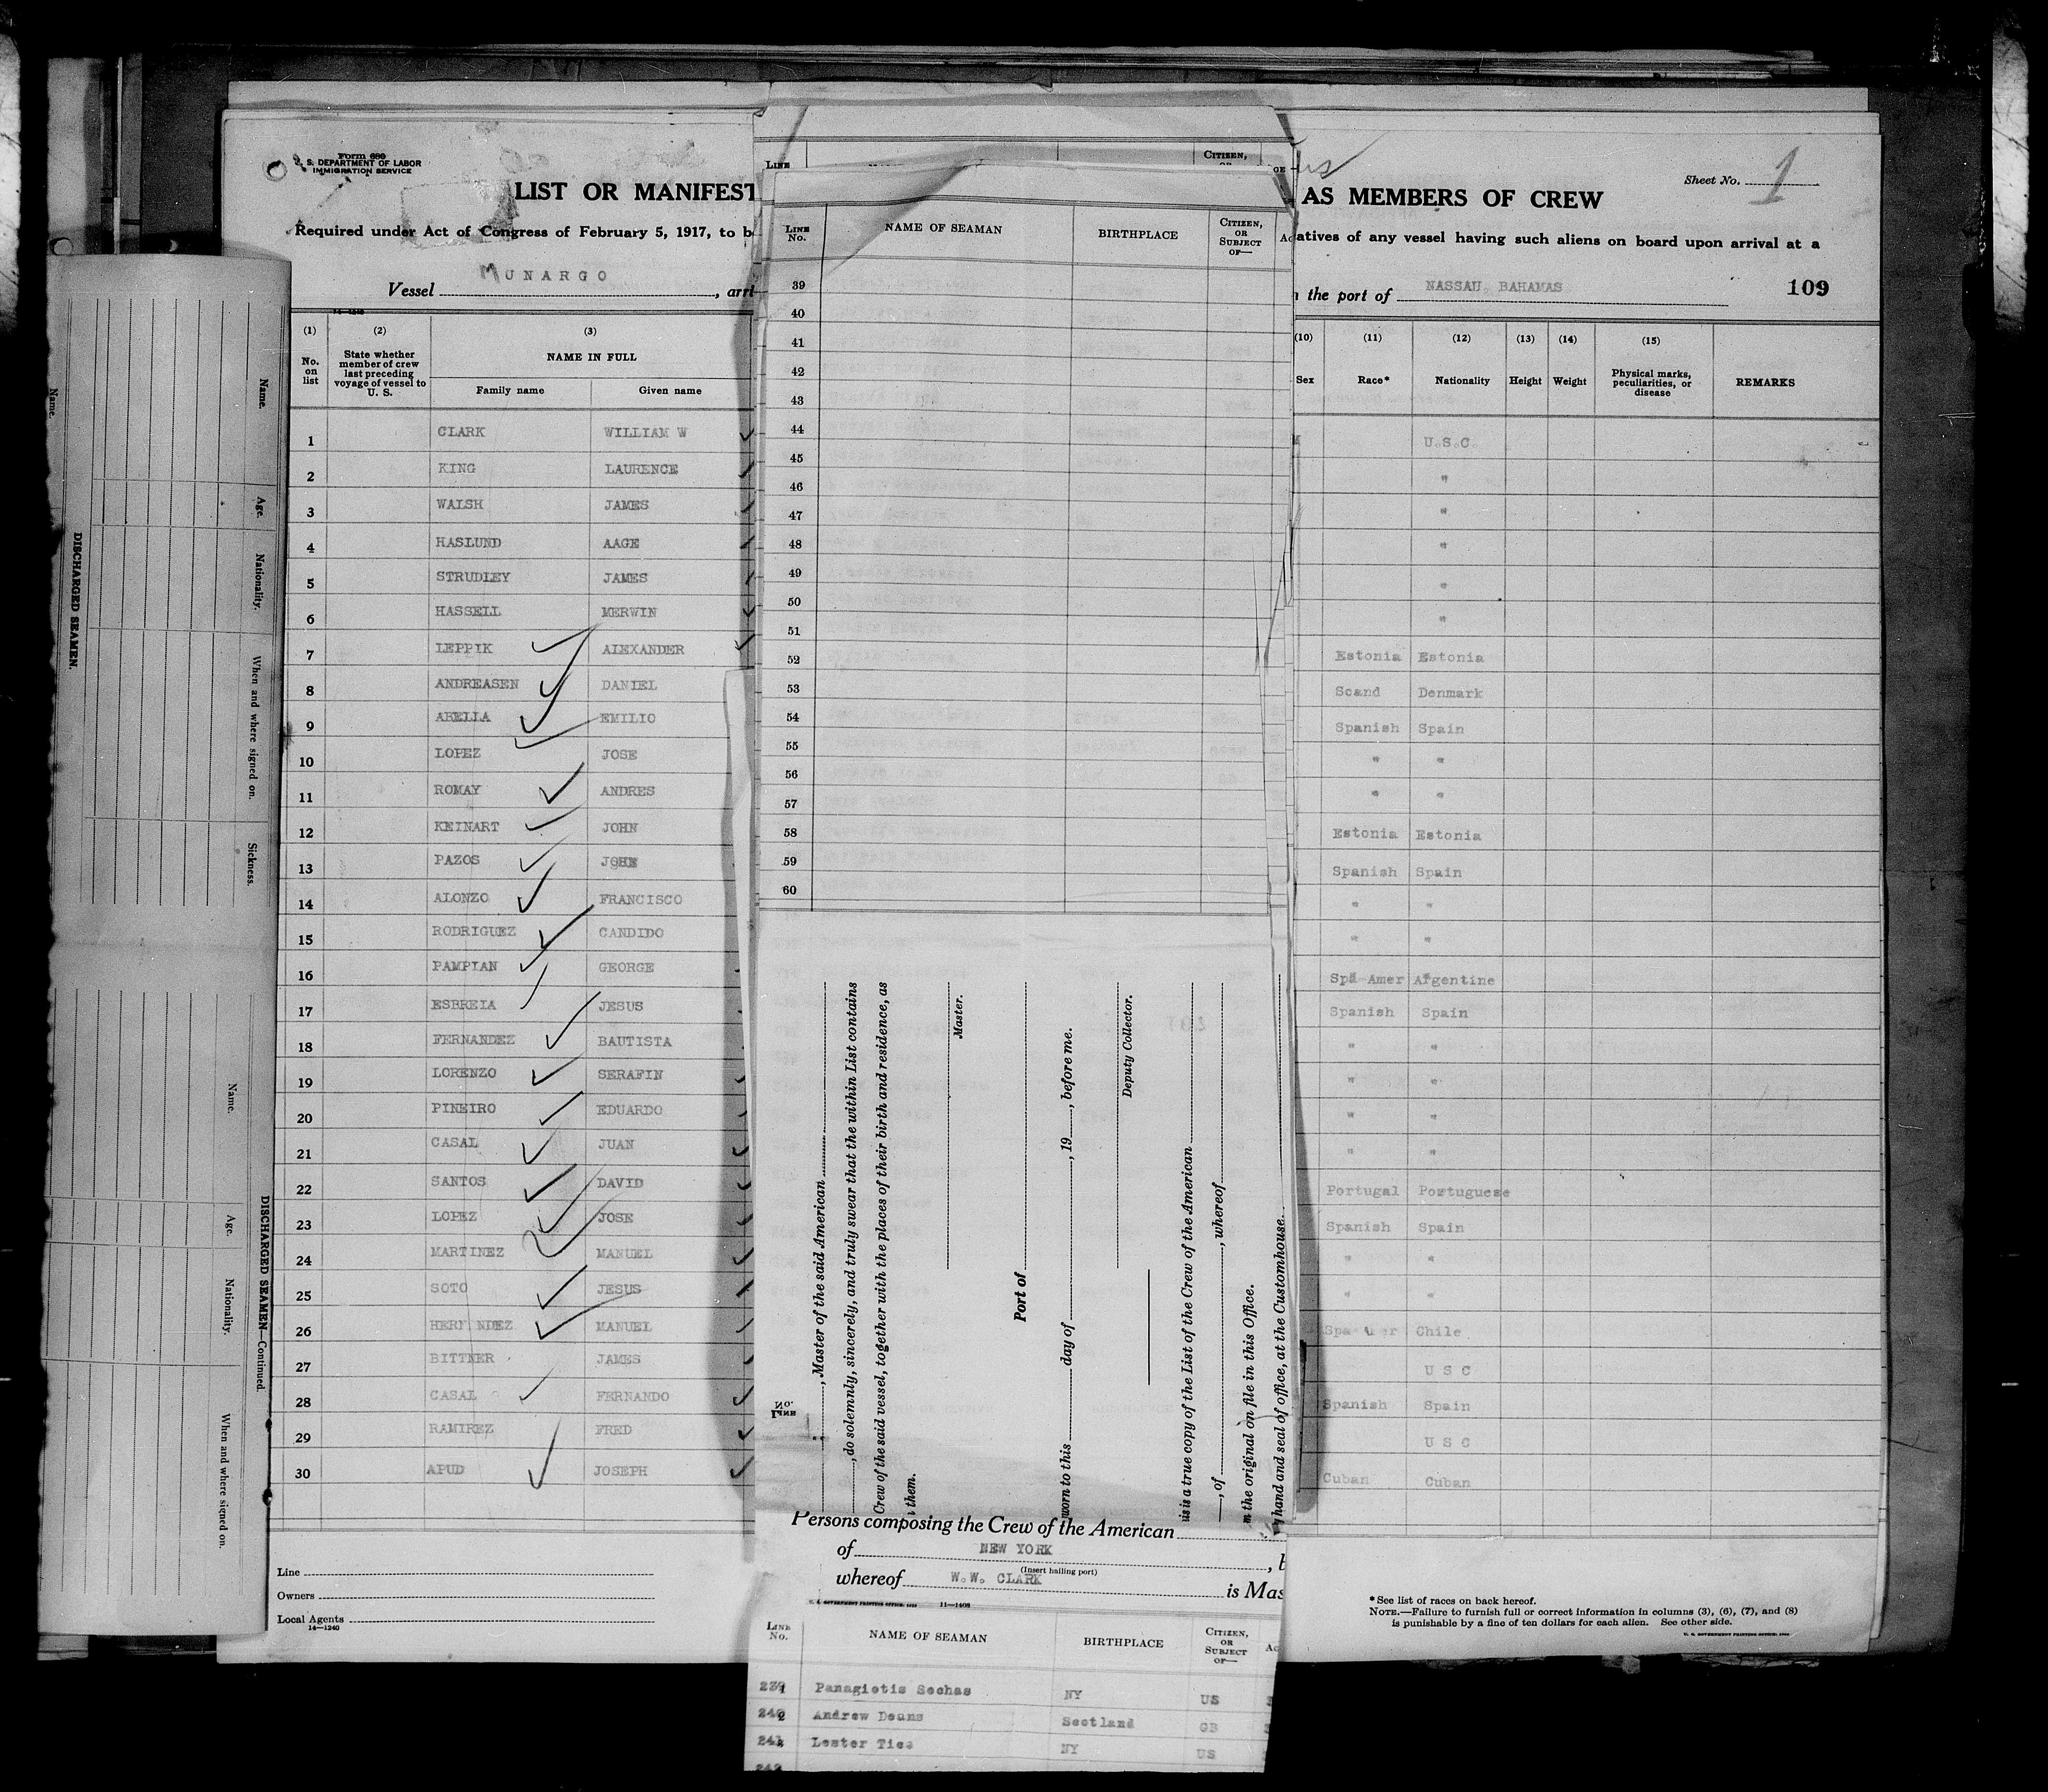 Form 680
U. S. DEPARTMENT OF LABOR
IMMIGRATION SERVICE
LIST OR MANIFEST
AS MEMBERS OF CREW
Sheet No. 1
Required under Act of Congress of February 5, 1917, to b
atives of any vessel having such aliens on board upon arrival at a
Vessel MUNARGO, arri
the port of NASSAU, BAHAMAS
109
(1) (2) (3) (10) (11) (12) (13) (14) (15)
No. on list State whether member of crew last preceding voyage of vessel to U. S. NAME IN FULL Family name Given name Sex Race* Nationality Height Weight Physical marks, peculiarities, or disease REMARKS
1 CLARK WILLIAM W U.S.C.
2 KING LAURENCE "
3 WALSH JAMES "
4 HASLUND AAGE "
5 STRUDLEY JAMES "
6 HASSELL MERWIN "
7 LEPPIK ALEXANDER Estonia Estonia
8 ANDREASEN DANIEL Scand Denmark
9 ABELLA EMILIO Spanish Spain
10 LOPEZ JOSE " "
11 ROMAY ANDRES " "
12 KEINART JOHN Estonia Estonia
13 PAZOS JOHN Spanish Spain
14 ALONZO FRANCISCO " "
15 RODRIGUEZ CANDIDO " "
16 PAMPIAN GEORGE Spa Amer Argentine
17 ESBREIA JESUS Spanish Spain
18 FERNANDEZ BAUTISTA " "
19 LORENZO SERAFIN " "
20 PINEIRO EDUARDO " "
21 CASAL JUAN " "
22 SANTOS DAVID Portugal Portuguese
23 LOPEZ JOSE Spanish Spain
24 MARTINEZ MANUEL " "
25 SOTO JESUS " "
26 HERNANDEZ MANUEL Chile
27 BITTNER JAMES U S C
28 CASAL FERNANDO Spanish Spain
29 RAMIREZ FRED U S C
30 APUD JOSEPH Cuban Cuban
Line
Owners
Local Agents
14—1240
*See list of races on back hereof.
NOTE.—Failure to furnish full or correct information in columns (3), (6), (7), and (8)
is punishable by a fine of ten dollars for each alien. See other side.
LINE CITIZEN,
LINE No. NAME OF SEAMAN BIRTHPLACE CITIZEN, OR SUBJECT OF—
39
40
41
42
43
44
45
46
47
48
49
50
51
52
53
54
55
56
57
58
59
60
, Master of the said American
, do solemnly, sincerely, and truly swear that the within List contains
Crew of the said vessel, together with the places of their birth and residence, as
them.
Master.
Port of
worn to this day of , 19 , before me.
Deputy Collector.
is is a true copy of the List of the Crew of the American
, of , whereof
the original on file in this Office.
hand and seal of office, at the Customhouse.
LINE No.
Persons composing the Crew of the American
of NEW YORK
(Insert hailing port)
whereof W.W. CLARK is Mas
11—1408
LINE No. NAME OF SEAMAN BIRTHPLACE CITIZEN, OR SUBJECT OF—
Panagiotis Sechas NY US
Andrew Deans Scotland GB
Lester Tice NY US
Name. Age. Nationality. When and where signed on. Sickness.
DISCHARGED SEAMEN.
Name.
Name. Age. Nationality. When and where signed on.
DISCHARGED SEAMEN—Continued.